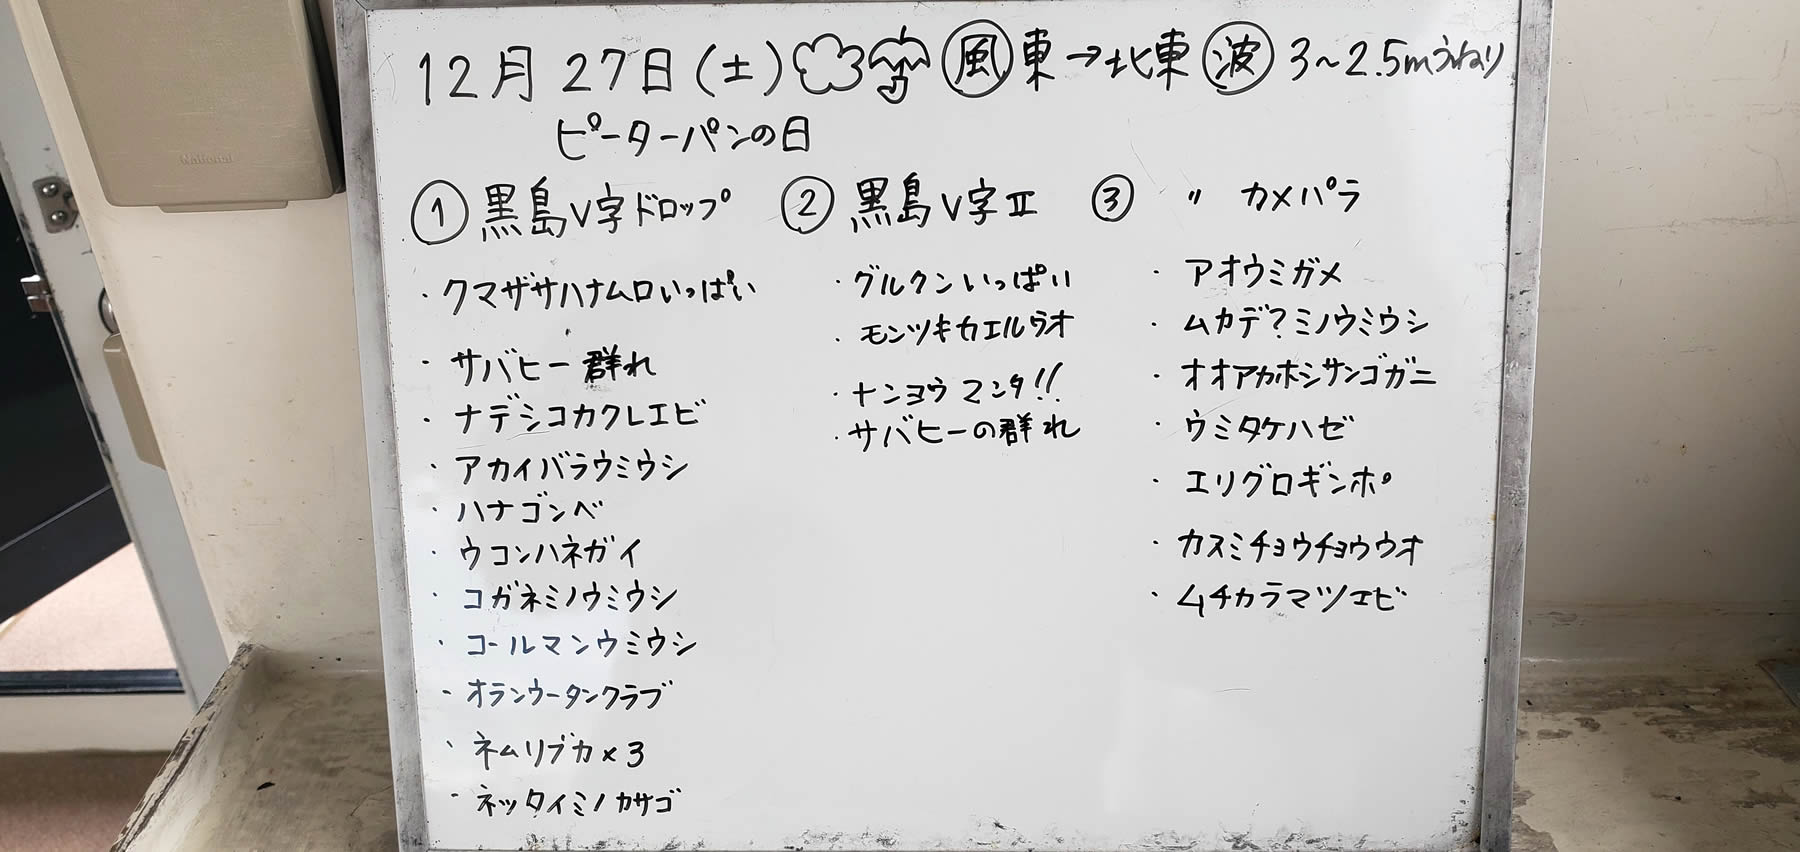 National
12月 27日(土) 風 東→北東 波 3~2.5mうねり
ピーターパンの日
① 黒島V字ドロップ
・クマザサハナムロいっぱい
・サバヒー 群れ
・ナデシコカクレエビ
・アカイバラウミウシ
・ハナゴンベ
・ウコンハネガイ
・コガネミノウミウシ
・コールマンウミウシ
・オランウータンクラブ
・ネムリブカ×3
・ネッタイミノカサゴ
② 黒島V字Ⅱ
・グルクンいっぱい
・モンツキカエルウオ
・ナンヨウマンタ!!
・サバヒーの群れ
③ 〃 カメパラ
・アオウミガメ
・ムカデ?ミノウミウシ
・オオアカホシサンゴガニ
・ウミタケハゼ
・エリグロギンポ
・カスミチョウチョウウオ
・ムチカラマツエビ